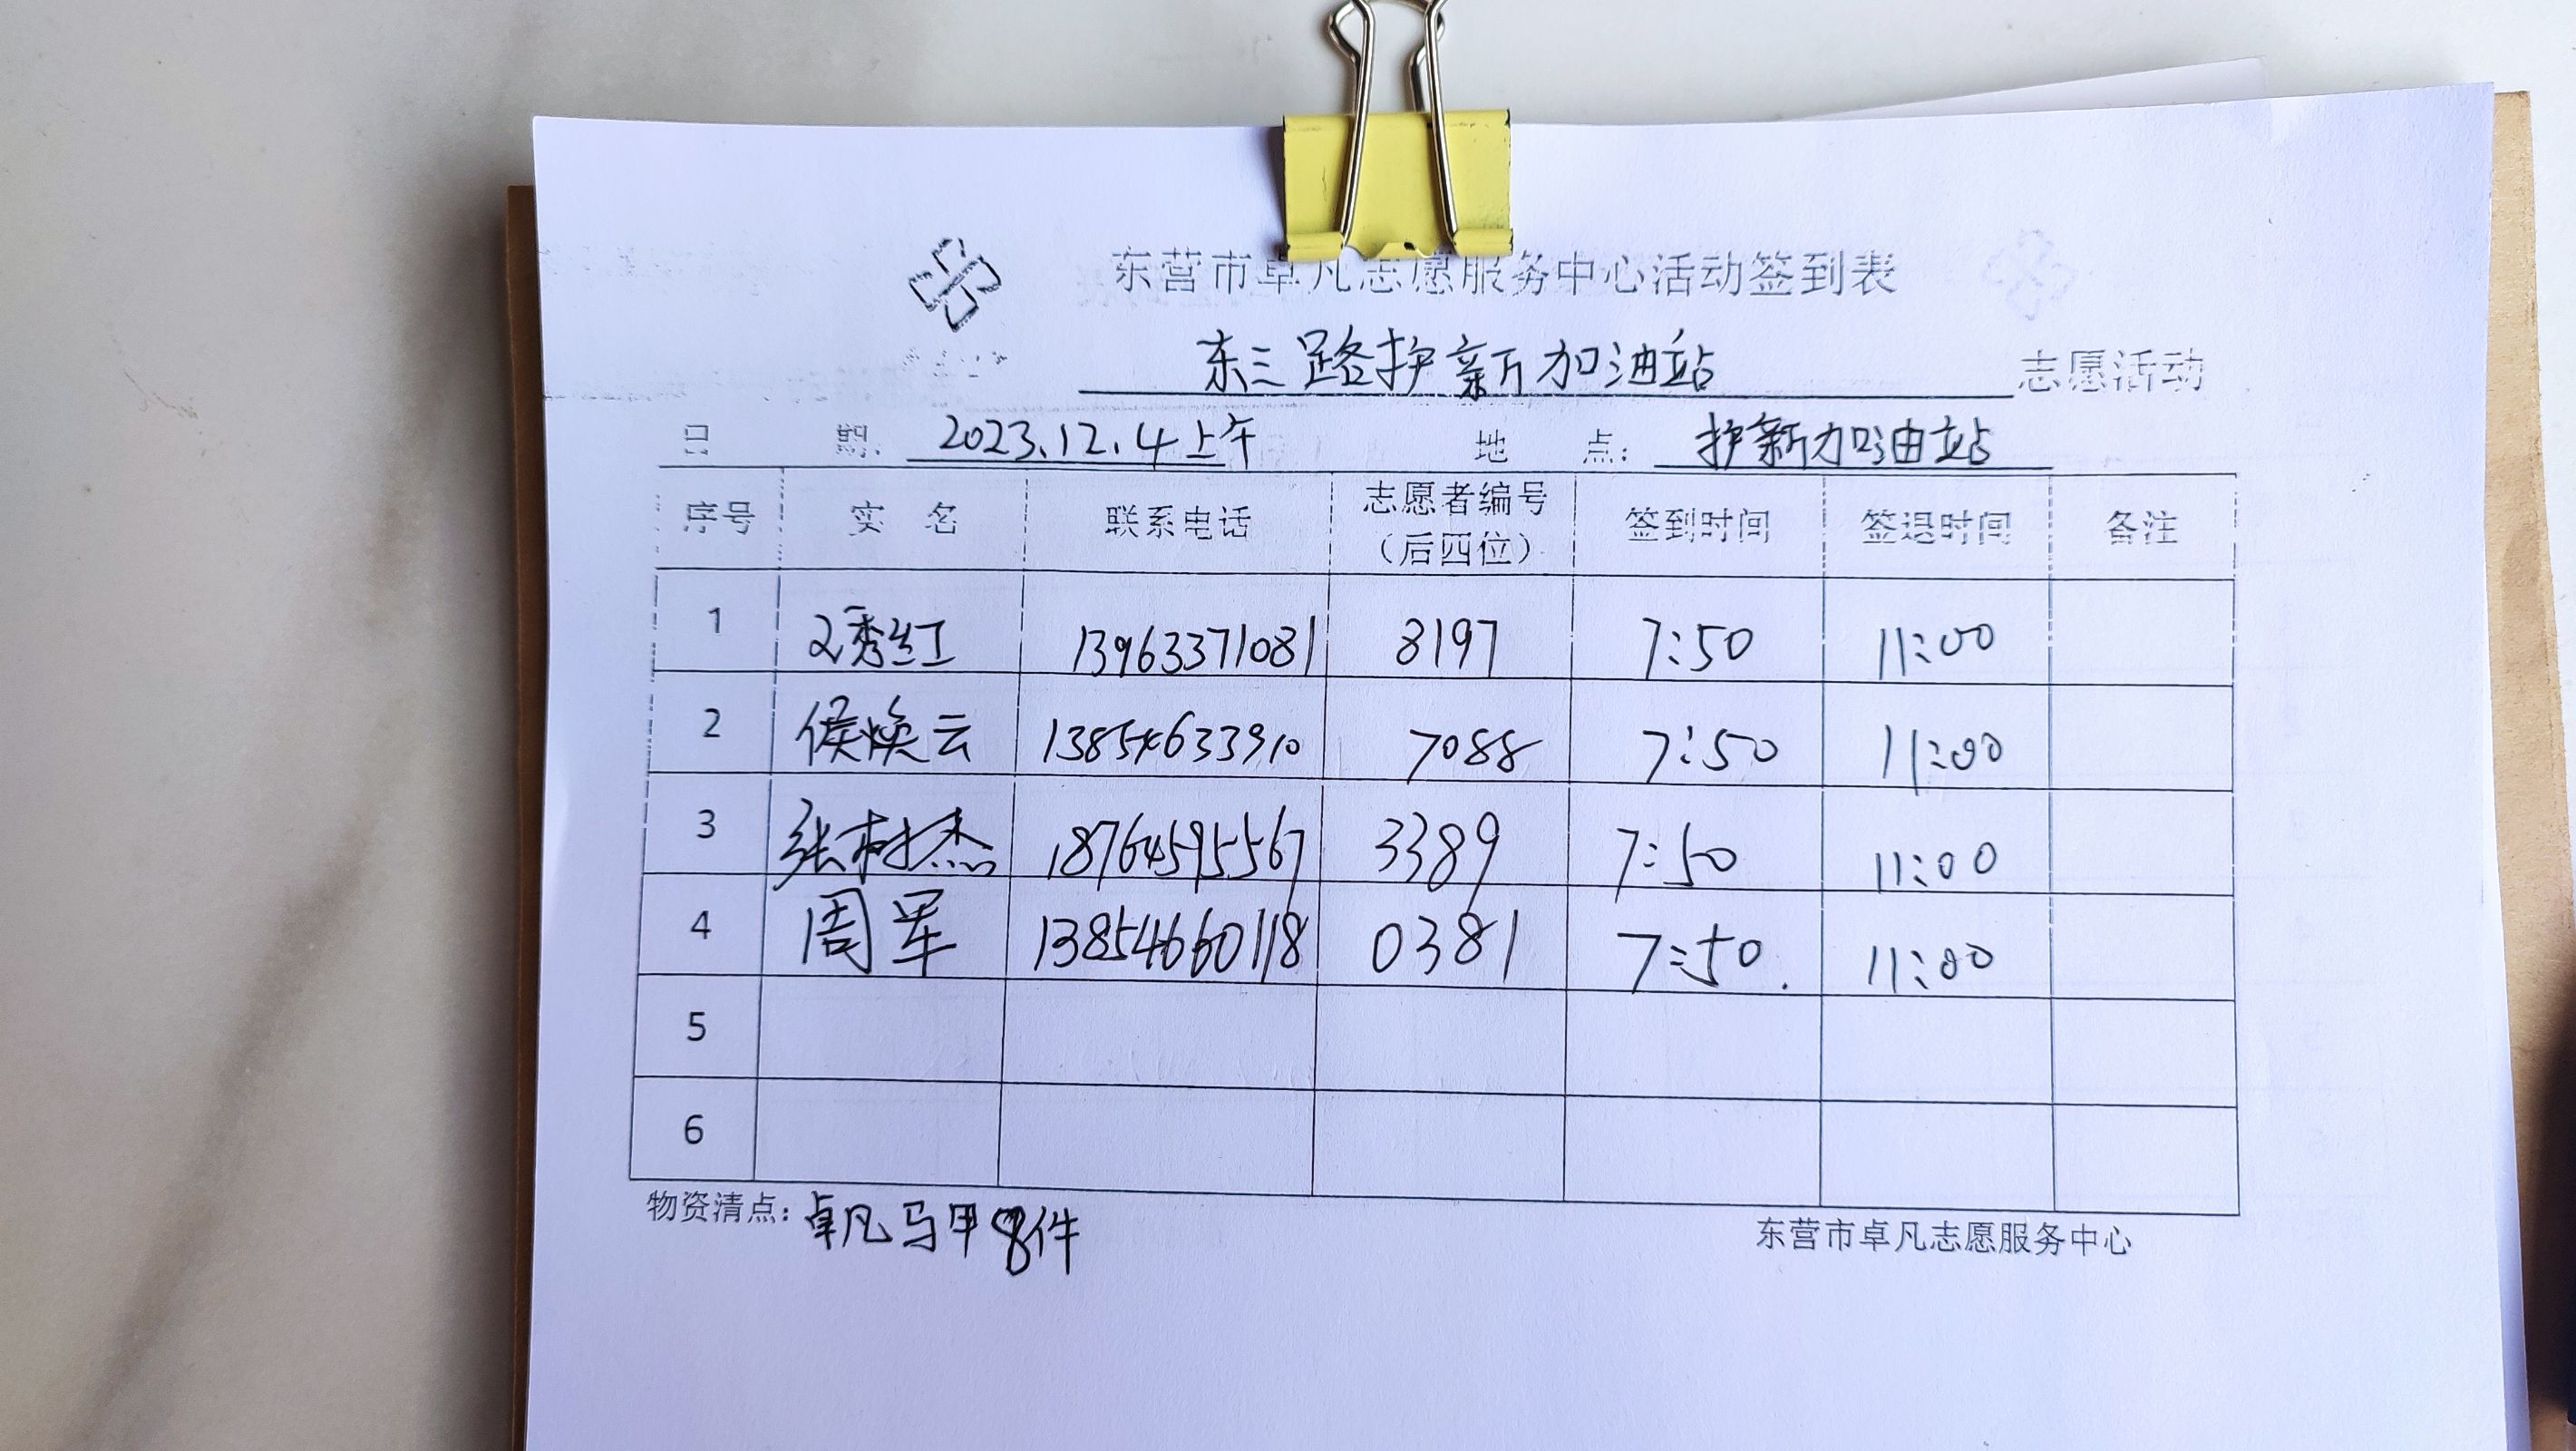 东营市卓凡志愿服务中心活动签到表
东三路护新加油站 志愿活动
日 期: 2023.12.4上午 地 点: 护新加油站
序号 实 名 联系电话 志愿者编号(后四位) 签到时间 签退时间 备注
1 秀红 13963371081 8197 7:50 11:00
2 侯焕云 13854633910 7088 7:50 11:00
3 张树杰 18764595567 3389 7:50 11:00
4 周军 13854660118 0381 7:50. 11:00
5
6
物资清点: 卓凡马甲8件
东营市卓凡志愿服务中心